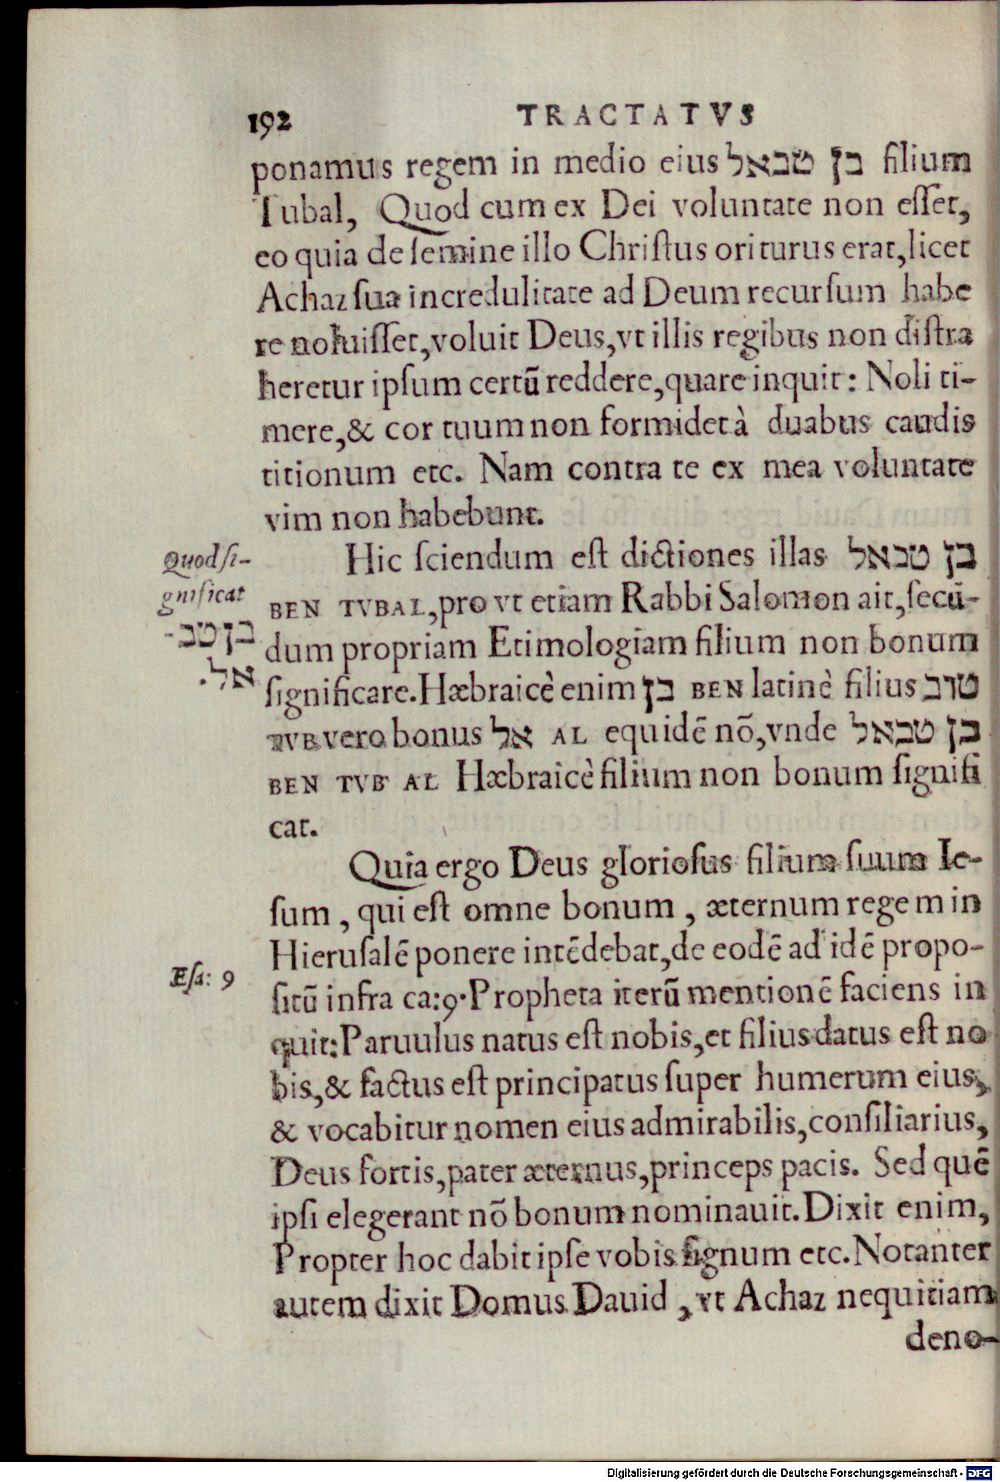 192 TRACTATVS
ponamus regem in medio eius בן טבאל filium
Tubal, Quod cum ex Dei voluntate non eſſet,
eo quia de ſemine illo Chriſtus oriturus erat, licet
Achaz ſua incredulitate ad Deum recurſum habe
re noluiſſet, voluit Deus, vt illis regibus non diſtra
heretur ipſum certū reddere, quare inquit: Noli ti-
mere, & cor tuum non formidet à duabus caudis
titionum etc. Nam contra te ex mea voluntate
vim non habebunt.
Quod ſi-
gnificat
בן טב-
אל.
Hic ſciendum eſt dictiones illas בן טבאל
BEN TVBAL, pro vt etiam Rabbi Salomon ait, ſecū-
dum propriam Etimologiam filium non bonum
ſignificare. Hæbraicè enim בן BEN latinè filius טוב
TVB vero bonus אל AL equidē nō, vnde בן טבאל
BEN TVB AL Hæbraicè filium non bonum ſignifi
cat.
Quia ergo Deus glorioſus filium ſuum Ie-
ſum, qui eſt omne bonum, æternum regem in
Hieruſalē ponere intēdebat, de eodē ad idē propo-
Eſa: 9
ſitū infra ca: 9. Propheta iterū mentionē faciens in
quit: Paruulus natus eſt nobis, et filius datus eſt no
bis, & factus eſt principatus ſuper humerum eius,
& vocabitur nomen eius admirabilis, conſiliarius,
Deus fortis, pater æternus, princeps pacis. Sed quē
ipſi elegerant nō bonum nominauit. Dixit enim,
Propter hoc dabit ipſe vobis ſignum etc. Notanter
autem dixit Domus Dauid, vt Achaz nequitiam
deno-
Digitalisierung gefördert durch die Deutsche Forschungsgemeinschaft - DFG